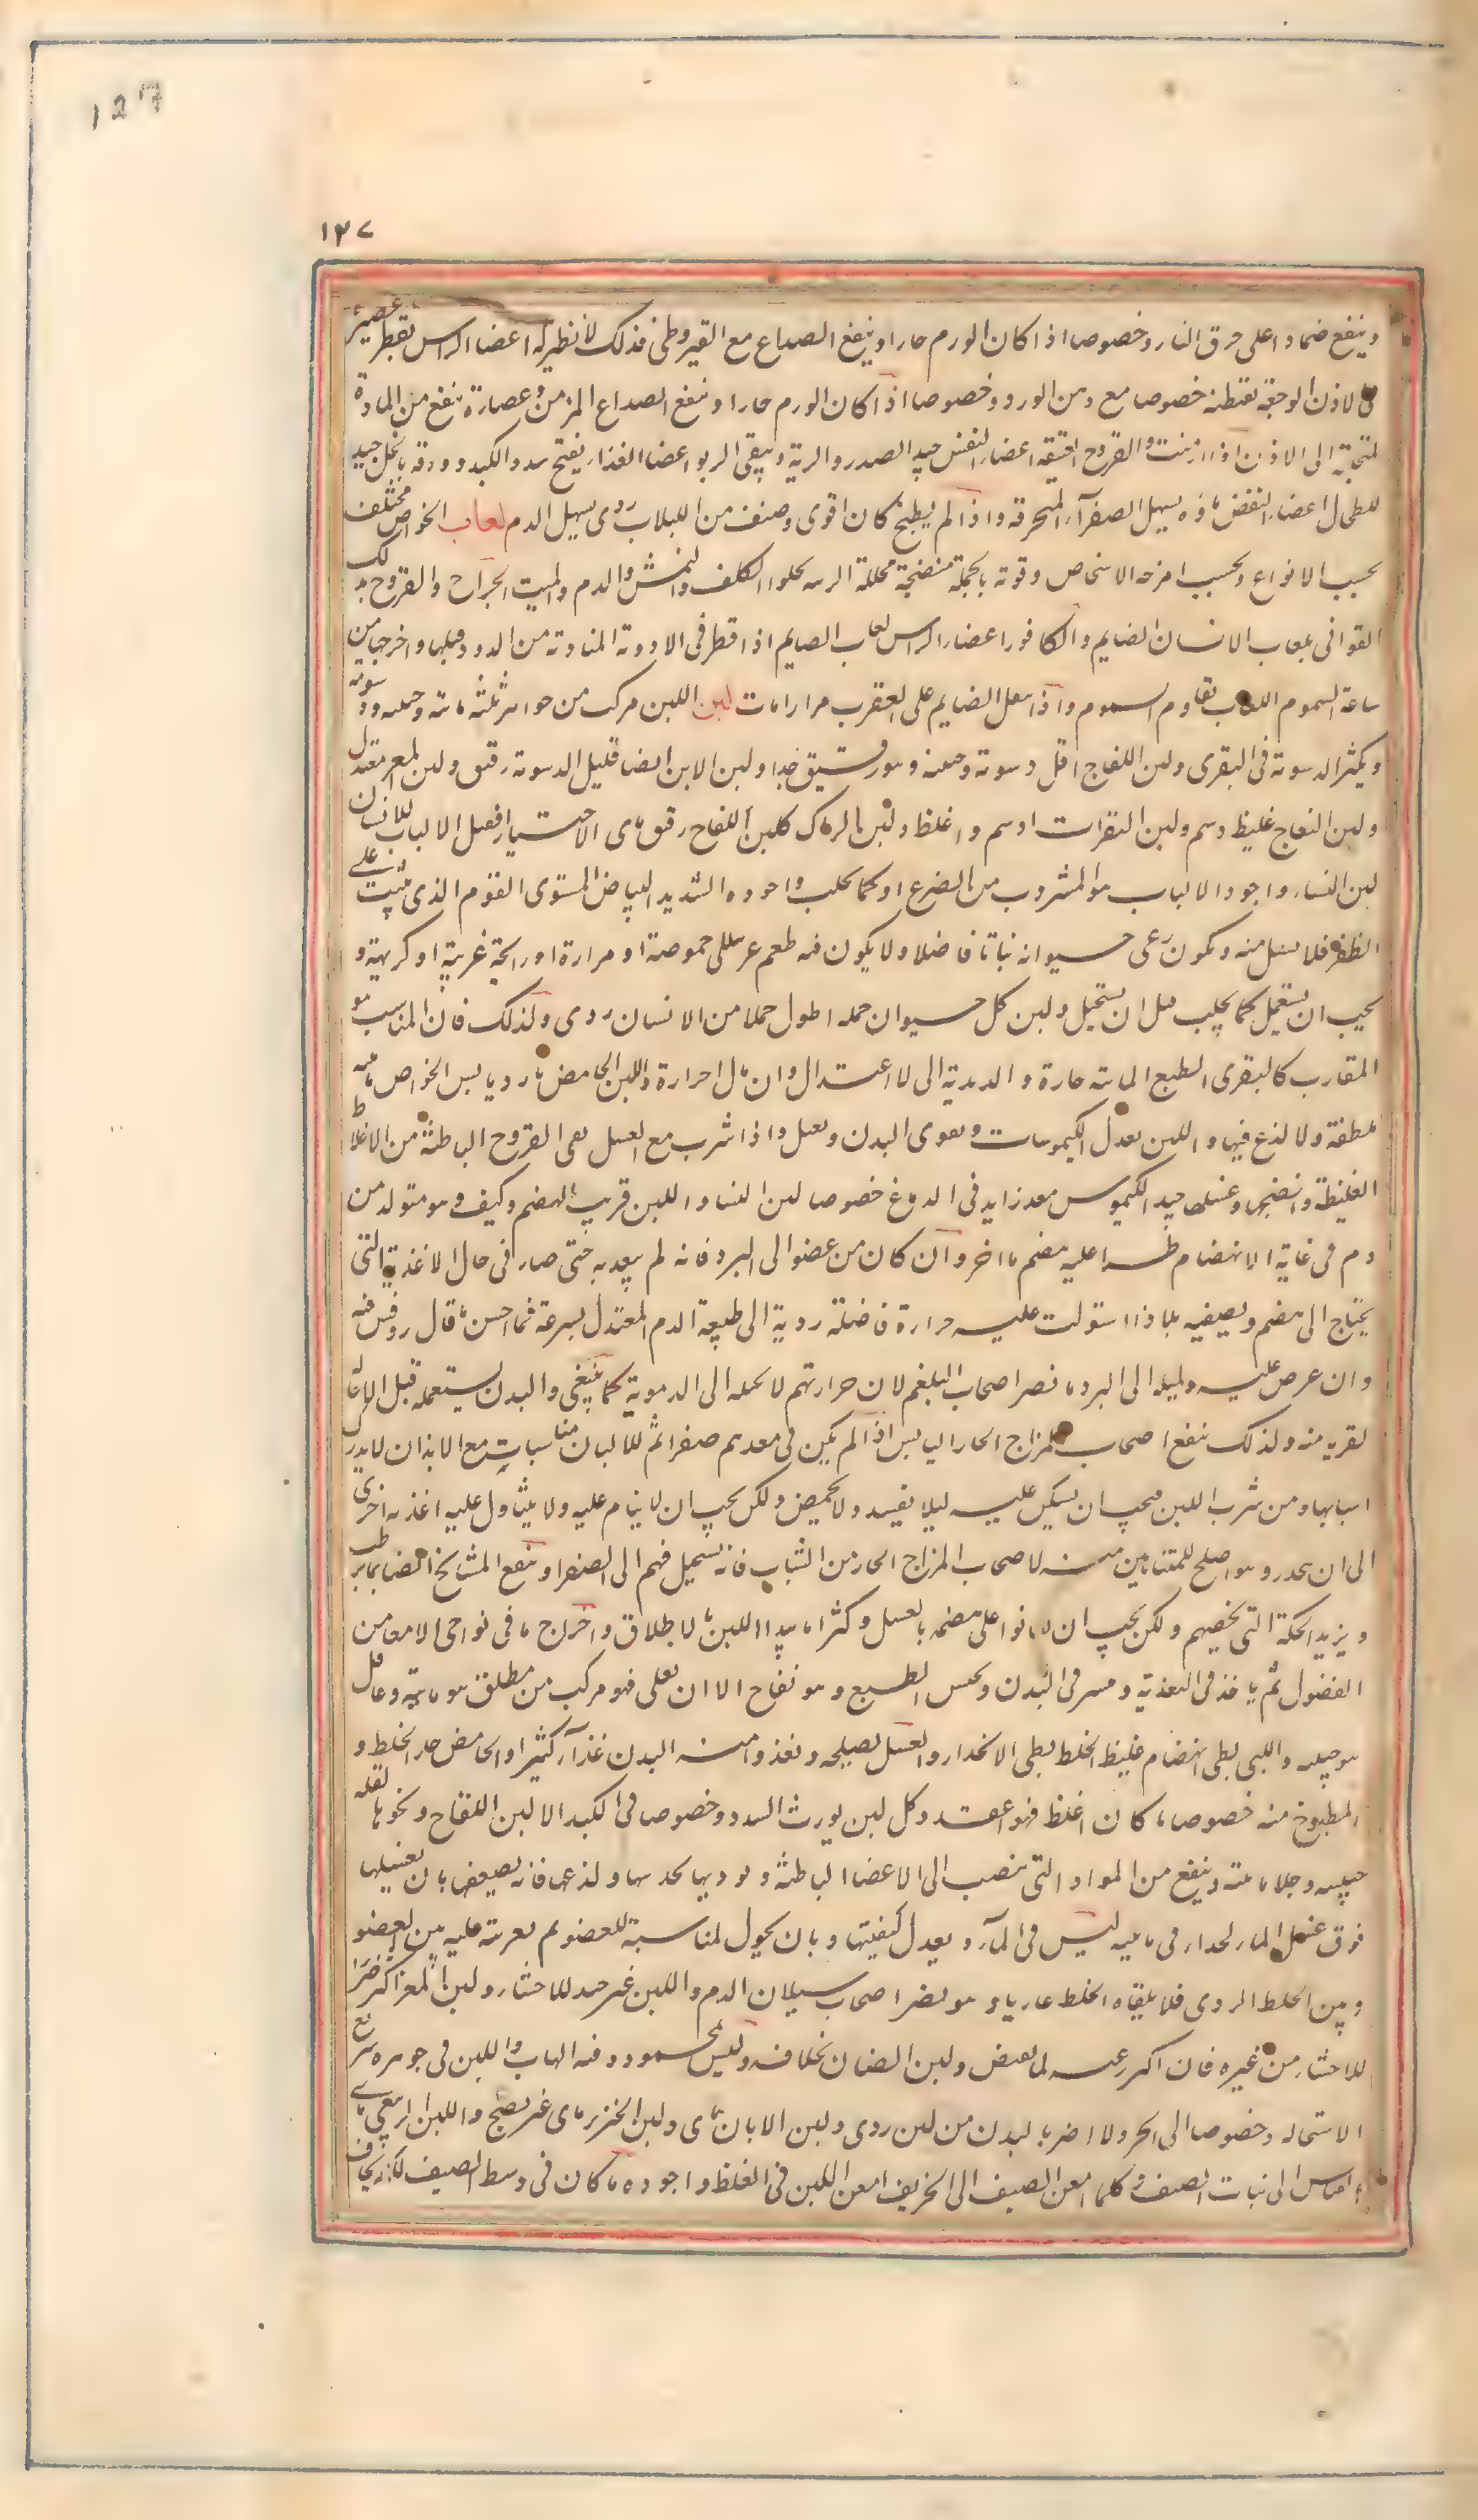 127
١٢٧
وينفع ضمادا على حرق النار وخصوصا اذا كان الورم حارا وينفع الصداع مع القيروطى فذلك لا نظير له اعضا الراس يقطر عصيره
لاذن الوجعة بقطنة خصوصا مع دهن الورد وخصوصا اذا كان الورم حارا وينفع الصداع المزمن وعصارة تنفع من المادة
المتحلبة الى الاذن اذا ازمنت والقروح العتيقة اعضا النفس جيد الصدر والرية وينقى الربو اعضا الغذاء يفتح سدد الكبد وورقه بالخل جيد
للطحال اعضاء النفض ماؤه يسهل الصفرآء المحرقة واذا لم يطبخ كان اقوى وصنف من اللبلاب ردى يسهل الدم لعاب الخواص مختلف
بحسب الانواع وبحسب امزجه الاشخاص وقوته بالجملة منضجة محللة الزينه يجلوا الكلف والنمش والدم والميت الجراح والقروح يدلك
القوافى بلعاب الانسان الصايم والكافور اعضاء الراس لعاب الصايم اذا قطر فى الاذن المتاذية من الدود قتلها واخرجها من
ساعة السموم اللعاب تقاوم السموم واذا تفل الصايم على العقرب مرارا مات لبن اللبن مركب من جواهر ثلثة مائيه وجبنيه ودسومة
ويكثر الدسومة فى البقرى ولبن اللقاح اقل دسومة وجبنه وهو رقيق جدا ولبن الاتن ايضا قليل الدسومة رقيق ولبن المعز معتدل
ولبن النعاج غليظ دسم ولبن البقرات ادسم واغلظ ولبن الرماك كلبن اللقاح رقيق مائى الاختيار افضل الالبان للانسان
لبن النساء واجود الالبان هو المشروب من الضرع او كما يحلب واجوده الشديد البياض المستوى القوام الذى يثبت على
الظفر فلا يسيل منه ويكون رعى حسيوانه نباتا فاضلا ولا يكون فيه طعم غريب الى حموضة او مرارة او رايحة غريبة او كريهة و
يجب ان يستعمل كما يحلب قبل ان يستحيل ولبن كل حسيوان حمله اطول حملا من الانسان ردى ولذلك فان المناسب هو
المقارب كالبقرى الطبع المائية حارة والزبدية الى الاعتدال وان مال احرارة واللبن الحامض بارد يابس الخواص مائيته
ملطفة ولا لذع فيها واللبن يعدل الكيموسات ويقوى البدن ويعسل واذا شرب مع العسل نقى القروح الباطنة من الاخلاط
الغليظة وانضجها وغسلها جيد الكيموس مغذ زايد فى الدماغ خصوصا لبن النساء واللبن قريب الهضم وكيف وهو متولد من
دم فى غاية الانهضام طرا عليه هضم ما اخر وان كان من عضو الى البرد فانه لم يبعد به حتى صار فى حال الاغذية التى
يحتاج الى هضم ويصفيه بل اذا استولت عليه حرارة فاضلة ردته الى طبيعة الدم المعتدل بسرعة فما احسن ما قال روفس فيه
وان عرض عليه وميله الى البرد ما يضر اصحاب البلغم لان حرارتهم لا تحيله الى الدموية كما ينبغى والبدن يستعمله قبل الاحالة
لقربه منه ولذلك ينفع اصحاب المزاج الحار اليابس اذا لم يكن فى معدهم صفرا ثم للالبان مناسبات مع الابدان لا يدرك
اسبابها ومن شرب اللبن فيجب ان يسكن عليه ليلا يفسد ولا يحمض ولكن يجب ان لا ينام عليه ولا يتناول عليه اغذيه اخرى
الى ان ينحدر وهو اصلح للمتناهين منه لاصحاب المزاج الحار من الشباب فانه يستحيل فيهم الى الصفرا وينفع المشايخ ايضا بما يرطب
ويزيد الحكة التى تخصهم ولكن يجب ان يعانوا على هضمه بالعسل وكثيرا ما يبدا اللبن بالاطلاق واخراج ما فى نواحى الامعا من
الفضول ثم ياخذ فى التغذية ويسرى فى البدن ويحبس الطبع وهو نفاخ الا ان يغلى فهو مركب من مطلق هو مائيته وعاقل
هو جبنيه واللبى بطى الانهضام غليظ الخلط بطى الانحدار والعسل يصلحه ويغذوا منه البدن غذاء كثيرا والحامض خام الخلط و
المطبوخ منه خصوصا ما كان اغلظ فهو اعقد وكل لبن يورث السدد وخصوصا فى الكبد الا لبن اللقاح ونحوها لقلة
جبنيه وجلا مائيته وينفع من المواد التى تنصب الى الاعضا الباطنة ويوذيها بحدتها ولذعها فانه يصيعها بان يغسلها
فوق غسل الماء لحدارى مائيه ليس فى المآء ويعدل كيفيتها وبان يحول لمناسبة للعضو لم تعريته عليه بين العضو
وبين الخلط الردى فلا يلقاه الخلط عاريا وهو يضر اصحاب سيلان الدم واللبن غير جيد للاحشا ولبن المعز اكثر ضررا
للاحشاء من غيره فان اكثر رعيه لما يعفص ولبن الضان بخلافه وليس محمودا وفيه الهاب واللبن فى جوهره سريع
الاستحالة وخصوصا الى الحر ولا اضر بالبدن من لبن ردى ولبن الاتان مائى ولبن الخنزير مائى غير نضج واللبن الربيعى مائى
بالقياس الى نبات الصيف وكلما امعن الصيف الى الخريف امعن اللبن فى الغلظ واجوده ما كان فى وسط الصيف لكنه يخاف